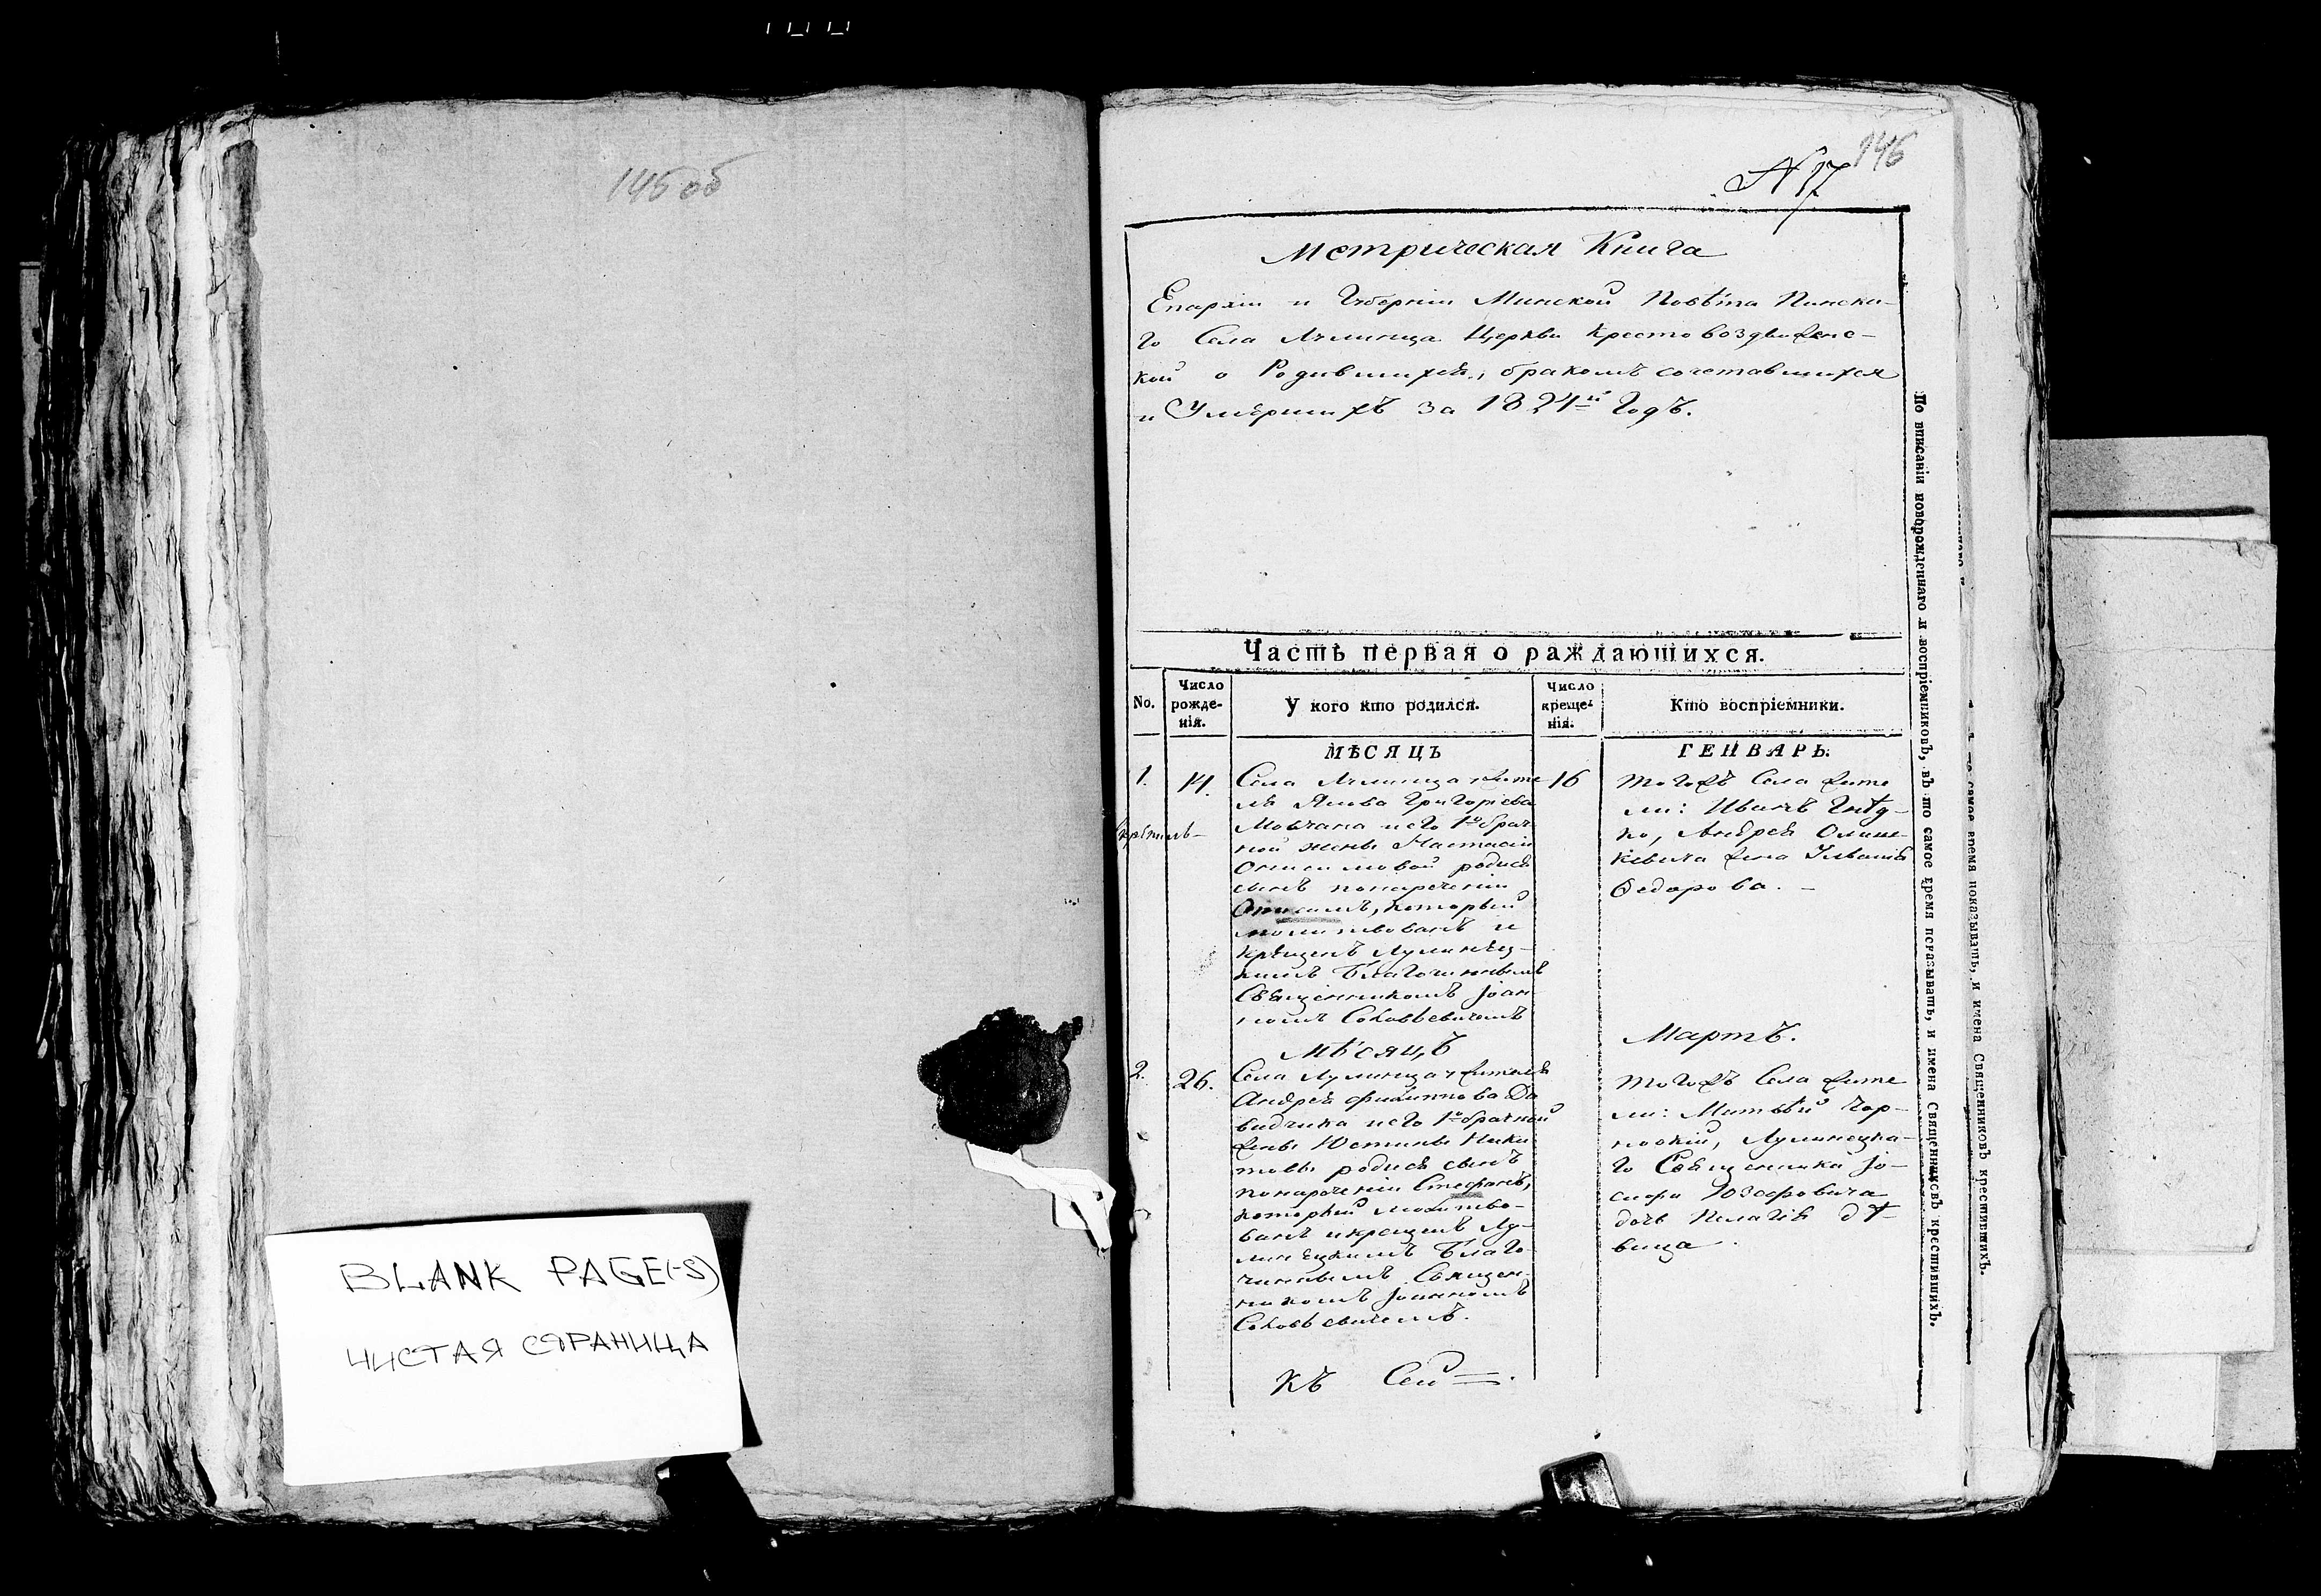 145об
BLANK PAGE(-S)
ЧИСТАЯ СТРАНИЦА
146
N 17
Метрическая Книга
Епархіи и Губерніи Минской Повѣта Пинска-
го Села Лулинца Церкви Крестовоздвиженс-
кой о Родившихся, бракомъ сочетавшихся
и Умершихъ за 1824й Годъ.
Часть первая о раждающихся.
No.
Число рожде- нія.
У кого кто родился.
Число креще- нія.
Кто воспріемники.
МѢСЯЦЪ
ГЕНВАРЬ.
1.
14.
Села Лулинца жите-
ля Якова Григоріева
Мовчана и его 1о брач-
ной жены Настасіи
Онисимовой родися
сынъ по нареченіи
Онисимъ, который
молитвованъ и
крещенъ Лулинец-
кимъ Благочиннымъ
Священникомъ Іоан-
номъ Соловьевичемъ
16
тогожъ Села жите
ли: Иванъ Гнѣд-
ко, Андрея Олиш-
кевича жена Ульянія
Федорова. –
Мѣсяцъ
Мартъ.
2.
26.
Села Лулинца жителя
Андрея Филиппова Да
видчика и его 1о брачной
жены Юстины Ники
товы родися сынъ
по нареченіи Стефанъ,
который молитво-
ванъ и крещенъ Лу-
линецкимъ Благо-
чиннымъ Священ-
никомъ Іоанномъ
Соловьевичемъ.
тогожъ Села жите
ли: Митьвѣй Чер-
ноокій, Лулинецка-
го Священника Іо-
сифа Юзефовича
дочь Пелагія дѣ-
вица
Къ Сей
По вписаніи новорожденнаго и воспріемниковъ, въ то самое время показывать, и имена Священниковъ крестившихъ.
то самое время показывать, и имена Священниковъ крестившихъ.